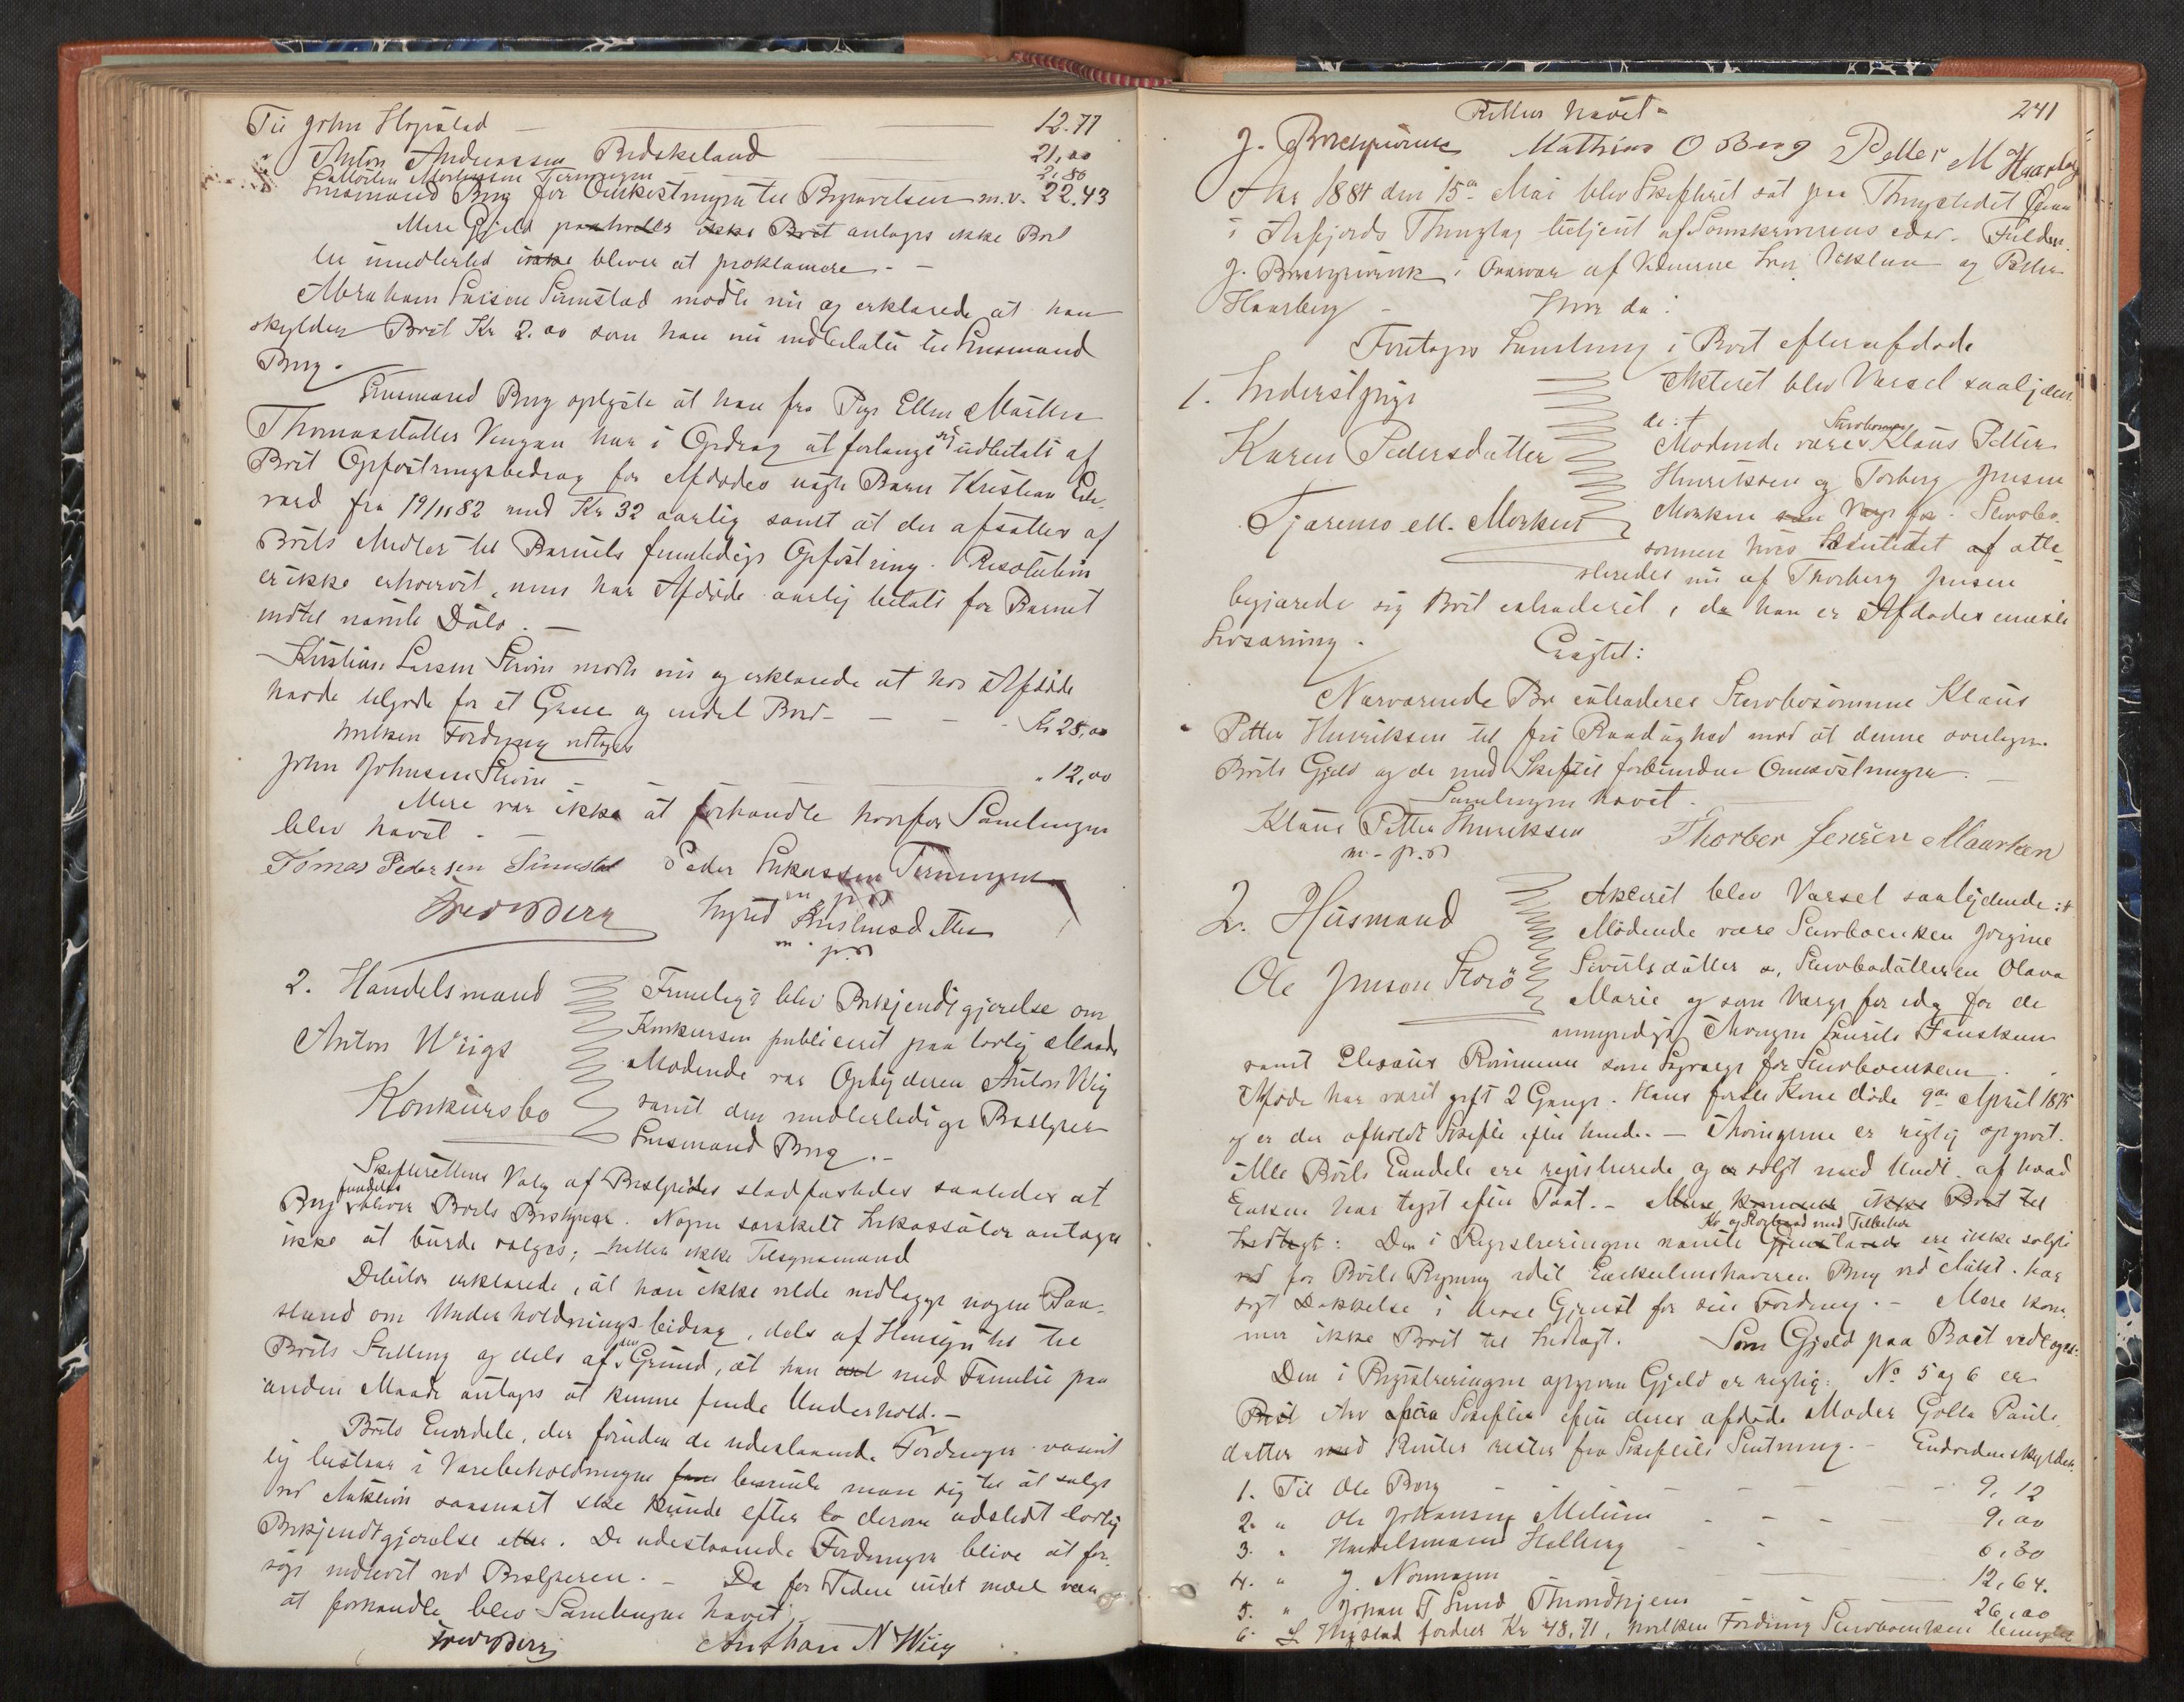 Til John Hopstad 12.77
" Anton Andreassen Bredskeland 21,00
Mortensen Terningen 2,80
Lensmand Berg for Omkostninger til Begravelsen m.v. 22.43
Mere Gjeld paahviler ikke Boet antages ikke Boet
imidlertid ikke bliver at proklamere. -
Abraham Larsen Sunstad mødte nu og erklærede at han
skylder Boet Kr 2.00 som han nu indbetalte til Lensmand
Berg.
Lensmand Berg oplyste at han fra Pige Ellen Martha
Thomasdatter Vingan har i Opdrag at forlange sig udbetalt af
Boet Opfostringsbidrag for Afdødes uægte Barn Kristian Ed-
vard fra 19/11 82 med Kr 32 aarlig samt at der afsættes af
Boets Midler til Barnets fremtidige Opfostring. Resolution
er ikke erhvervet, men har Afdøde aarlig betalt for Barnet
indtil nævnte Dato. -
Kristian Larsen Strøm mødte nu og erklærede at hos Afdøde
havde tilgode for et Gevær og endel Bord - - - Kr 28,00
hvilken Fordring vedtages
John Johnsen Strøm - - " 12,00
Mere var ikke at forhandle hvorfor Samlingen
blev hævet. -
Tomas Pedersen Sunstad Peder Lukassen Terningen
m. p. P.
Fred Berg Ingred Kristensdatter
m. p. P.
2. Handelsmand
Anton Wiigs
Konkursbo
Fremlagt blev Bekjendtgjørelse om
Konkursen publiceret paa lovlig Maade
Mødende var Opbyderen Anton Wiig
samt den midlertidige Bestyrer
Lensmand Berg. -
Skifterettens Valg af Bestyrer stadfæstedes saaledes at
Berg fremdeles bliver Boets Bestyrer. Nogen særskilt Inkassator antages
ikke at burde vælges; heller ikke Tilsynsmand
Debitor erklærede, at han ikke vilde nedlægge nogen Paa-
stand om Underholdningsbidrag, dels af Hensyn til
Boets Stilling og dels af den Grund, at han med Familie paa
anden Maade antages at kunne finde Underhold. -
Boets Eiendele, der foruden de udestaaende Fordringer væsent-
lig bestaar i Varebeholdningen bestemte man sig til at sælge
ved Auktion saasnart ske kunde efter derom udstedt lovlig
Bekjendtgjørelse. De udestaaende Fordringer blive at for-
søge inddrevet ved Bestyreren. - Da for Tiden intet mere var
at forhandle blev Samlingen hævet.
Fred Berg Anthon N Wiig
241
Retten hævet -
J. Mathias O Berg Petter M Haarberg
Aar 1884 den 15de Mai blev Skifteret sat paa Thingstedet
i Aafjords Thinglag betjent af Sorenskriverens edsv. Fuldm.
J. i Overvær af Vidnerne Lars og Petter
Haarberg - Hvor da:
Foretoges Samling i Boet efter afdøde
1. Inderstpige
Karen Pedersdatter
Tjaremo M. Morken
Akteret blev Varsel saalyden-
de: †
Mødende vare Stervbosøn Klaus Petter
Henriksen og Torberg Jensen
Morken som Værge for Stervbo-
sønnen hvis Identitet af atte-
steredes nu af Thorberg Jensen
begjærede sig Boet extraderet, da han er Afdødes eneste
Livsarving. -
Eragtet:
Nærværende Bo extraderes Stervbosønnen Klaus
Petter Henriksen til fri Raadighed mod at denne overtager
Boets Gjeld og de med Skiftet forbundne Omkostninger. -
Samlingen hævet. -
Klaus Petter Henriksen Thorber Jensen Maarken
m. p. P.
2. Husmand
Ole Jenson Storø
Akteret blev Varsel saalydende: †
Mødende vare Stervboenken Jorgine
Sivertsdatter og Stervbodatteren Olava
Marie og som Værge for edq for de
umyndige Arvinger Laurits Fanskum
samt Elisæus Rømmen som Lagværge for Stervboenken.
Afdøde har været gift 2 Gange. Hans første Kone døde 9de April 1875
og er der afholdt Skifte efter hende. - Arvingerne er rigtig opgivet.
Alle Boets Eiendele ere registrerede og er solgt med Undt. af hvad
Enken har taget efter Taxt. - Mere kommer ikke Boet til
Indtægt: Den i Registreringen nævnte Ko og Storbaad med Tilbehør ere ikke solgte
ved for Boets Regning idet Enkeelmshaveren Berg ved Aukt. har
søgt Dækkelse i disse Gjenst for sin Fordring. - Mere kom-
mer ikke Boet til Indtægt. Som Gjeld paa Boet vedtages:
Den i Registreringen opgivne Gjeld er rigtig: No 5 og 6 er
Arv fra Skiftet efter deres afdøde Moder Golla Pauls-
datter med Renter rester fra Skiftets Slutning. - Endvidere skyldes:
1. Til Ole Berg - - - 9,12
2. " Ole Johansen Melum - - - 9,00
3. " Handelsmand Hellberg - - 6,30
4. " J. Normann 12,64.
5. " Johan F Lund Throndhjem 26,00
6. L Hopstad fordrer Kr 48,71, hvilken Fordring Stervboenken benegter